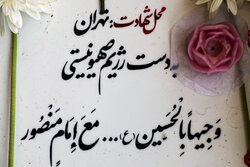 محل شهادت: تهران
به‌دست رژیم صهیونیستی
وَجیهاً بِالْحُسَین (ع) ... مَعَ إِمَامٍ مَنْصُور